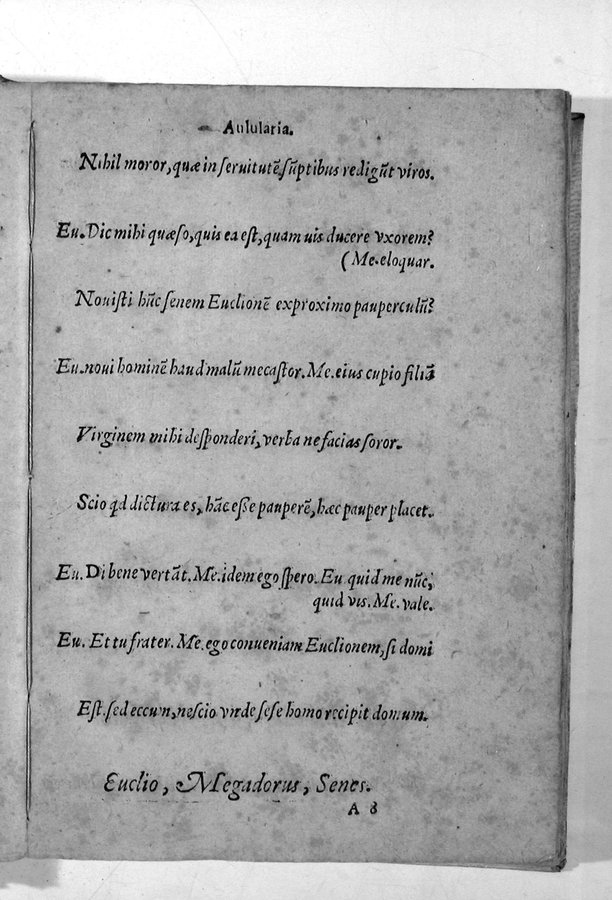 Aulularia.
Nihil moror, quæ in seruitutē sūptibus redigūt viros.
Eu. Dic mihi quæso, quis ea est, quam uis ducere vxorem?
(Me. eloquar.
Nouisti hūc senem Euclionē ex proximo pauperculū?
Eu. noui hominē haud malū mecastor. Me. eius cupio filiā
Virginem mihi desponderi, verba ne facias soror.
Scio qd dictura es, hāc esse pauperē, hæc pauper placet.
Eu. Di bene vertāt. Me. idem ego spero. Eu quid me nūc,
quid vis. Me. vale.
Eu. Et tu frater. Me. ego conueniam Euclionem, si domi
Est. sed eccum, nescio vnde sese homo recipit domum.
Euclio, Megadorus, Senes.
A 8